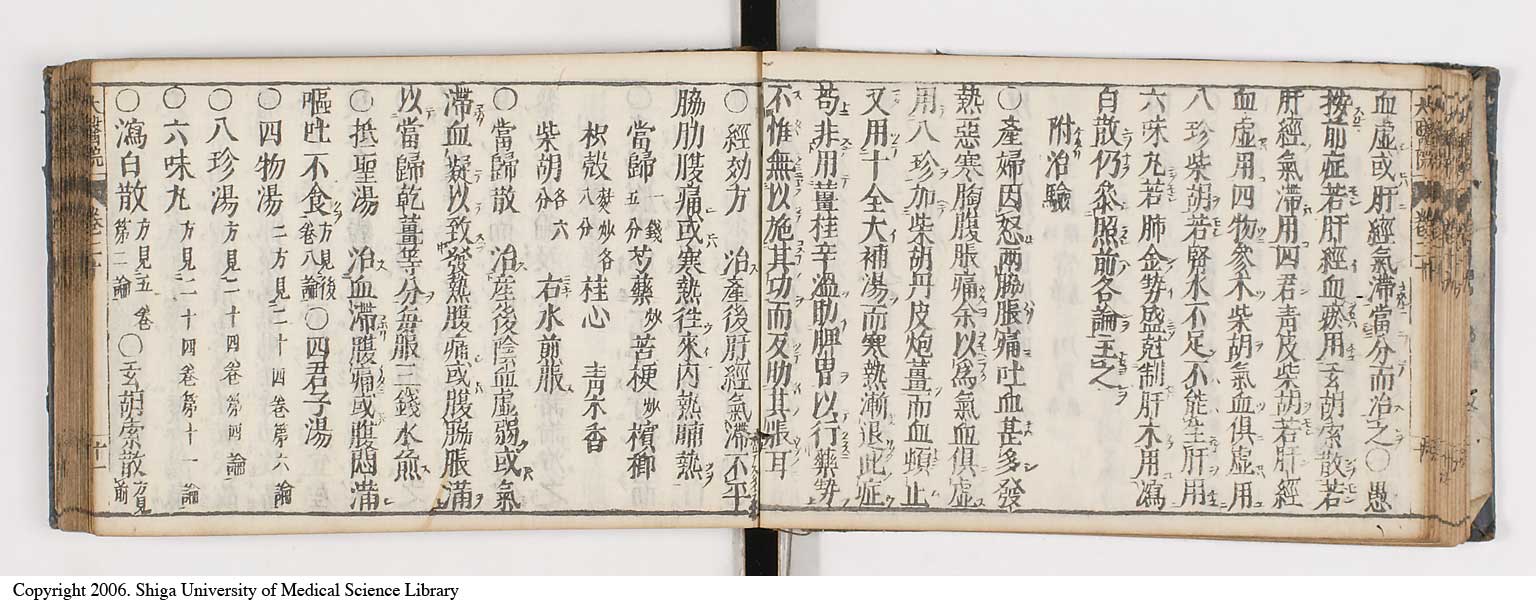 血虛或肝經氣滯當分而治之○愚
按前症若肝經血瘀用玄胡索散若
肝經氣滯用四君青皮柴胡若肝經
血虛用四物參朮柴胡氣血俱虛用
八珍柴胡若腎水不足不能生肝用
六味丸若肺金勢盛尅制肝木用瀉
白散仍參照前各論主之
附治驗
○產婦因怒兩脇脹痛吐血甚多發
熱惡寒胸腹脹痛余以爲氣血俱虛
用八珍加柴胡丹皮炮薑而血頓止
又用十全大補湯而寒熱漸退此症
苟非用薑桂辛溫助脾胃以行藥勢
不惟無以施其功而反助其脹耳
○經効方 治產後肝經氣滯不平
脇肋腹痛或寒熱徃來內熱晡熱
當歸一錢五分 芍藥炒 苦梗炒 檳榔
枳殻麩炒各八分 桂心 青木香
柴胡各六分 右水煎服
○當歸散 治產後陰血虛弱或氣
滯血凝以致發熱腹痛或腹脇脹滿
以當歸乾薑等分毎服三錢水煎
○抵聖湯 治血滯腹痛或脹悶滿
嘔吐不食方見後卷八論○四君子湯
○四物湯二方見二十四卷第六論
○八珍湯方見二十四卷第四論
○六味丸方見二十四卷第十一論
○瀉白散方見五卷第二論○玄胡索散方見前
卷二十
十一
Copyright 2006. Shiga University of Medical Science Library